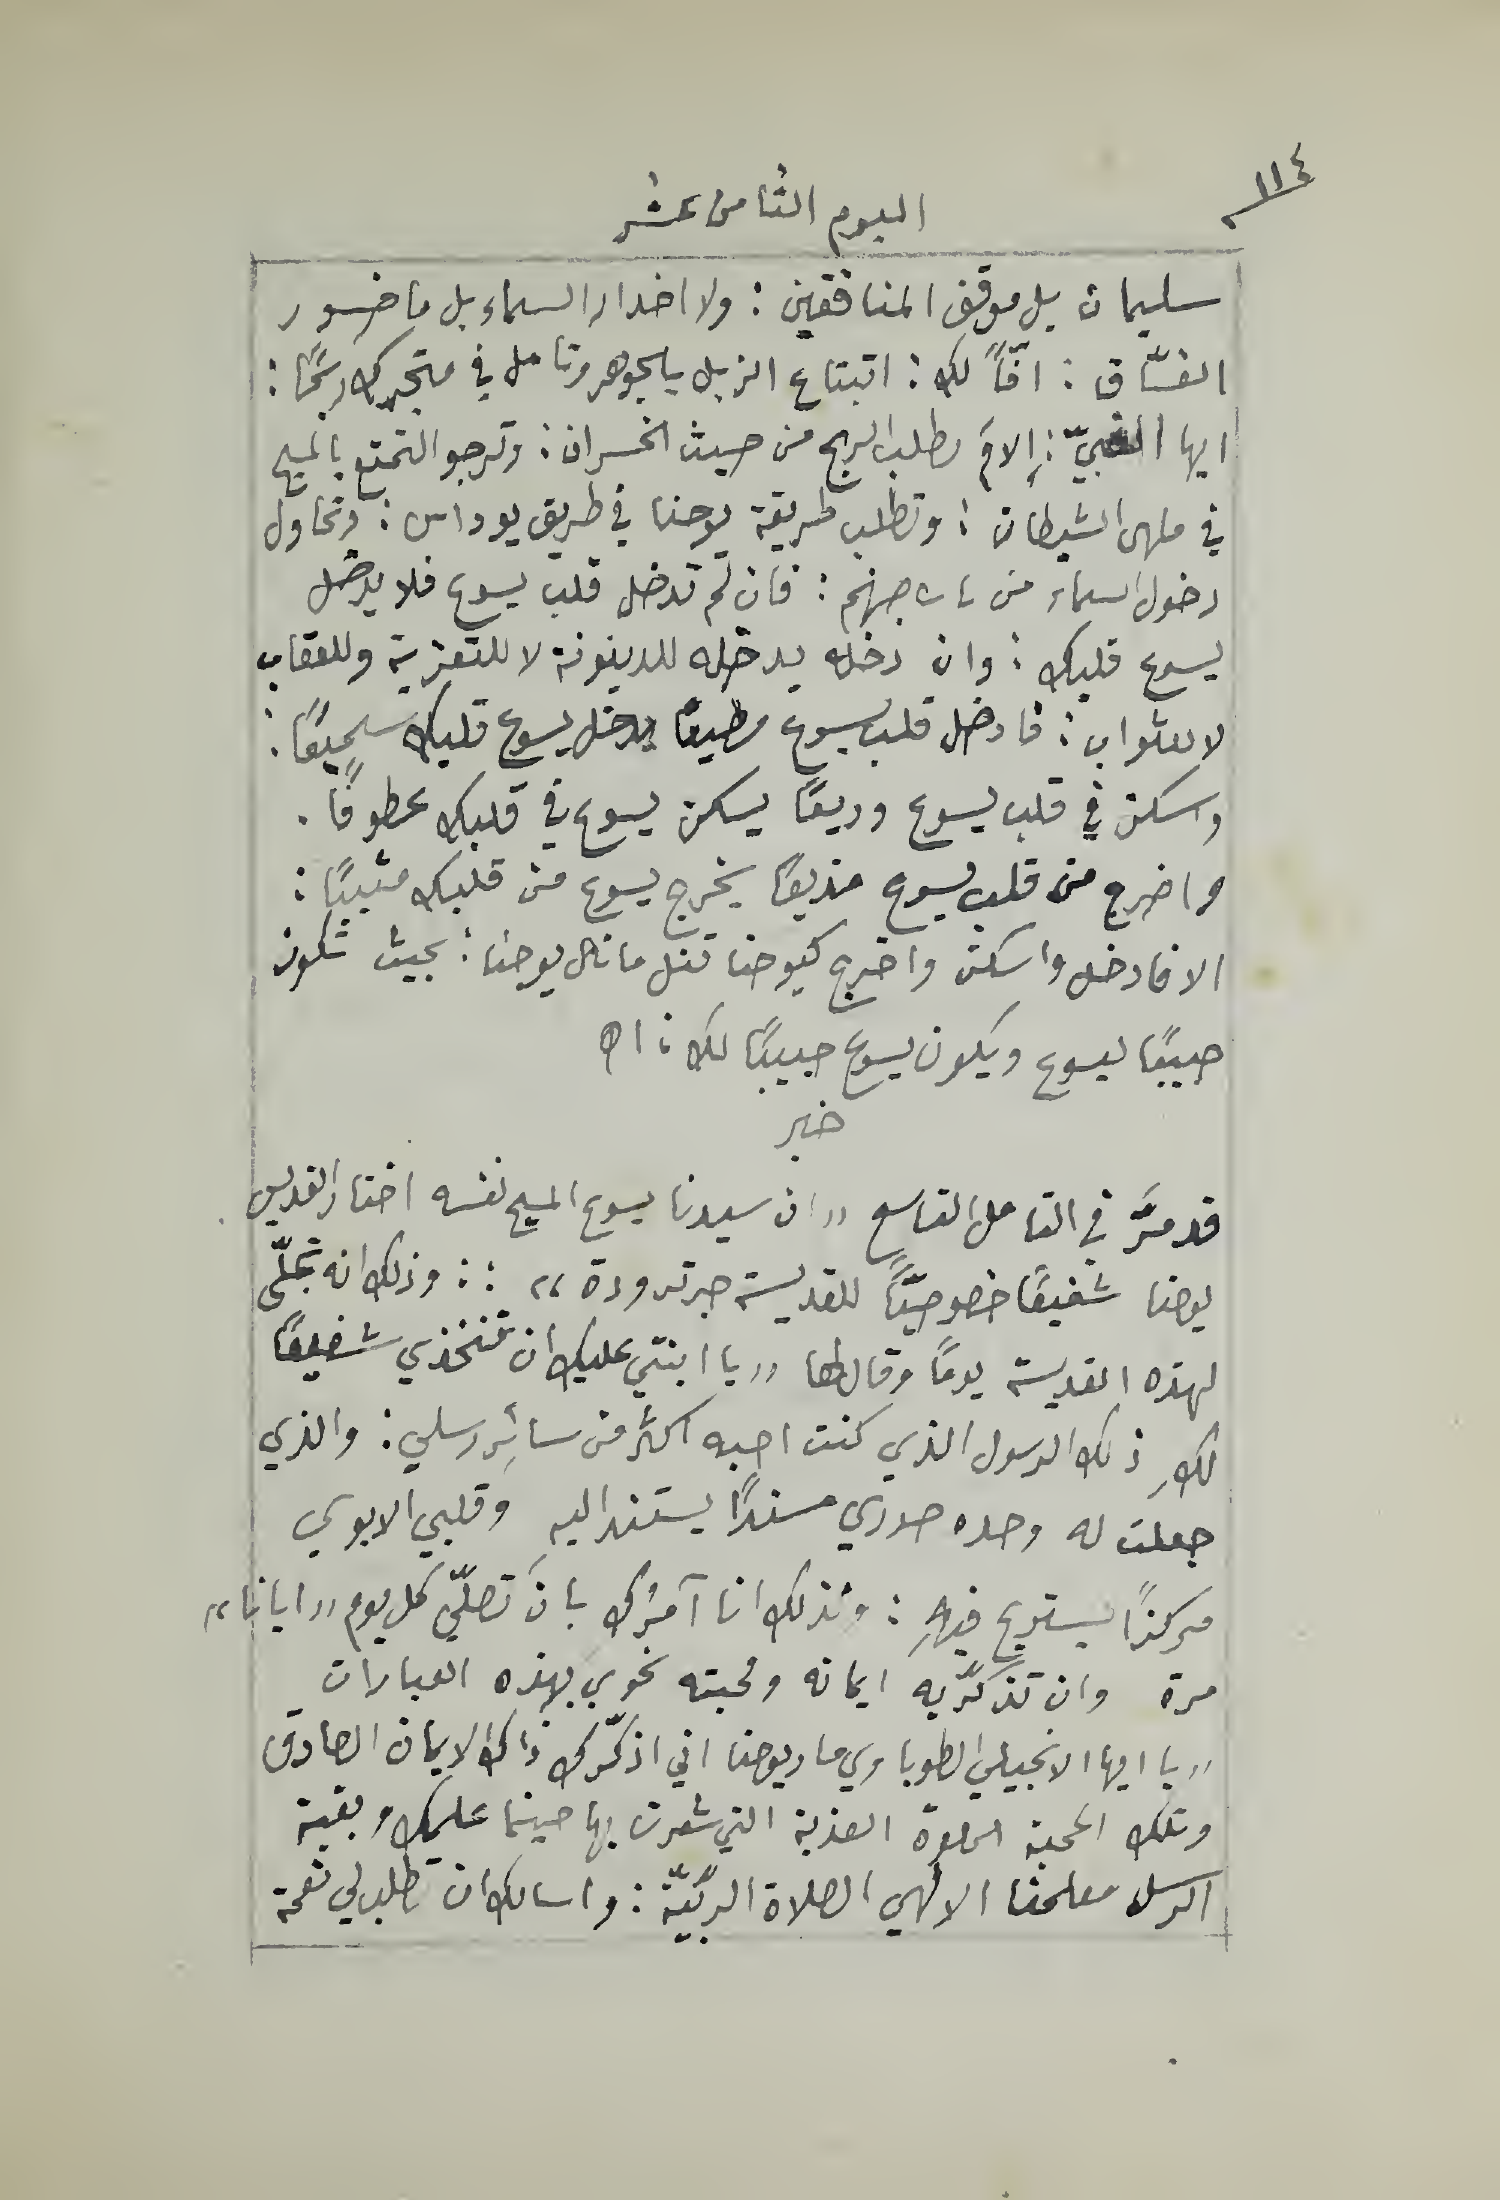 ١١٤
اليوم الثامن عشر
سليمان بل موقف المنافقين : ولا اخدار السماء بل ماخور
الفسّاق : افّاً لك : اتبتاع الزبل بالجوهر وتامل في متجرك ربحًا :
ايها الغبيّ : إِلامَ تطلب الربح من حيث الخسران : وترجو التمتع بالمسيح
في ملهى الشيطان : وتطلب طريقة يوحنا في طريق يوداس : وتحاول
دخول السماء من باب جهنم : فان لم تدخل قلب يسوع فلا يدخل
يسوع قلبك : وان دخله يدخله للدينونة لا للتعزية وللعقاب
لا للثواب : فادخل قلب يسوع مطيعًا يدخل يسوع قلبك سميعًا :
واسكن في قلب يسوع وديعًا يسكن يسوع في قلبك عطوفًا .
واخرج من قلب يسوع مذيعًا يخرج يسوع من قلبك مثيبًا :
الا فادخل واسكن واخرج كيوحنا تنل ما نال يوحنا : بحيث تكون
حبيبًا ليسوع ويكون يسوع حبيبًا لك : اه
خبر
قد مرَّ في التامل التاسع «ان سيدنا يسوع المسيح نفسه اختار القديس
يوحنا شفيعًا خصوصيًّا للقديسة جرترودة» : : وذلك انه تجلّى
لهذه القديسة يومًا وقال لها «يا ابنتي عليك ان تتخذي شفيعًا
لكِ ذلك الرسول الذي كنت احبه اكثر من سائِر رسلي : والذي
جعلت له وحده صدري مسندًا يستند اليه وقلبي الابوي
مركزًا يستريح فيهِ : ولذلك انا آمرُك بان تصلّي كل يوم «ابانا»
مرة وان تذكّريه ايمانه ومحبته نحوي بهذه العبارات
«يا ايها الانجيلي الطوباوي مار يوحنا اني اذكّرك ذاك الايمان الصادق
وتلك المحبة الحلوة العذبة التي شعرت بها حينما علمك وبقية
الرسل معلمنا الالهي الصلاة الربّيّة : واسالك ان تطلب لي نعمة